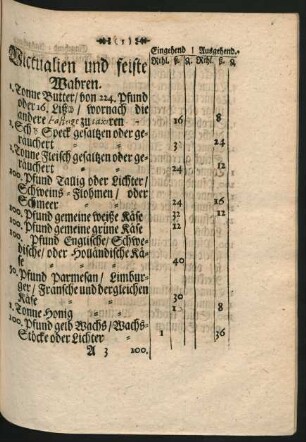 ( 5 )
Victualien und feiste Wahren.
Eingehend | Ausgehend.
Rthl. ß. ₰. Rthl. ß. ₰.
1. Tonne Butter/ von 224. Pfund
oder 16. Liß℔ / wornach die
andere zu taxiren 16 8
1. Speck gesaltzen oder ge-
räuchert 3 24
1. Tonne Fleisch gesaltzen oder ge-
räuchert 24 12
100. Pfund Tallig oder Lichter/
Schweins-Flohmen/ oder
Schmeer 24 16
100. Pfund gemeine weiße Käse 32 12
100. Pfund gemeine grüne Käse 12
100. Pfund Englische/ Schwe-
dische/ oder Holländische Kä-
se 40
50. Pfund Parmesan/ Limbur-
ger/ Fransche und dergleichen
Käse 30
1. Tonne Honig 1 8
100. Pfund gelb Wachs/ Wachs-
Stöcke oder Lichter 1 36
A 3 100.